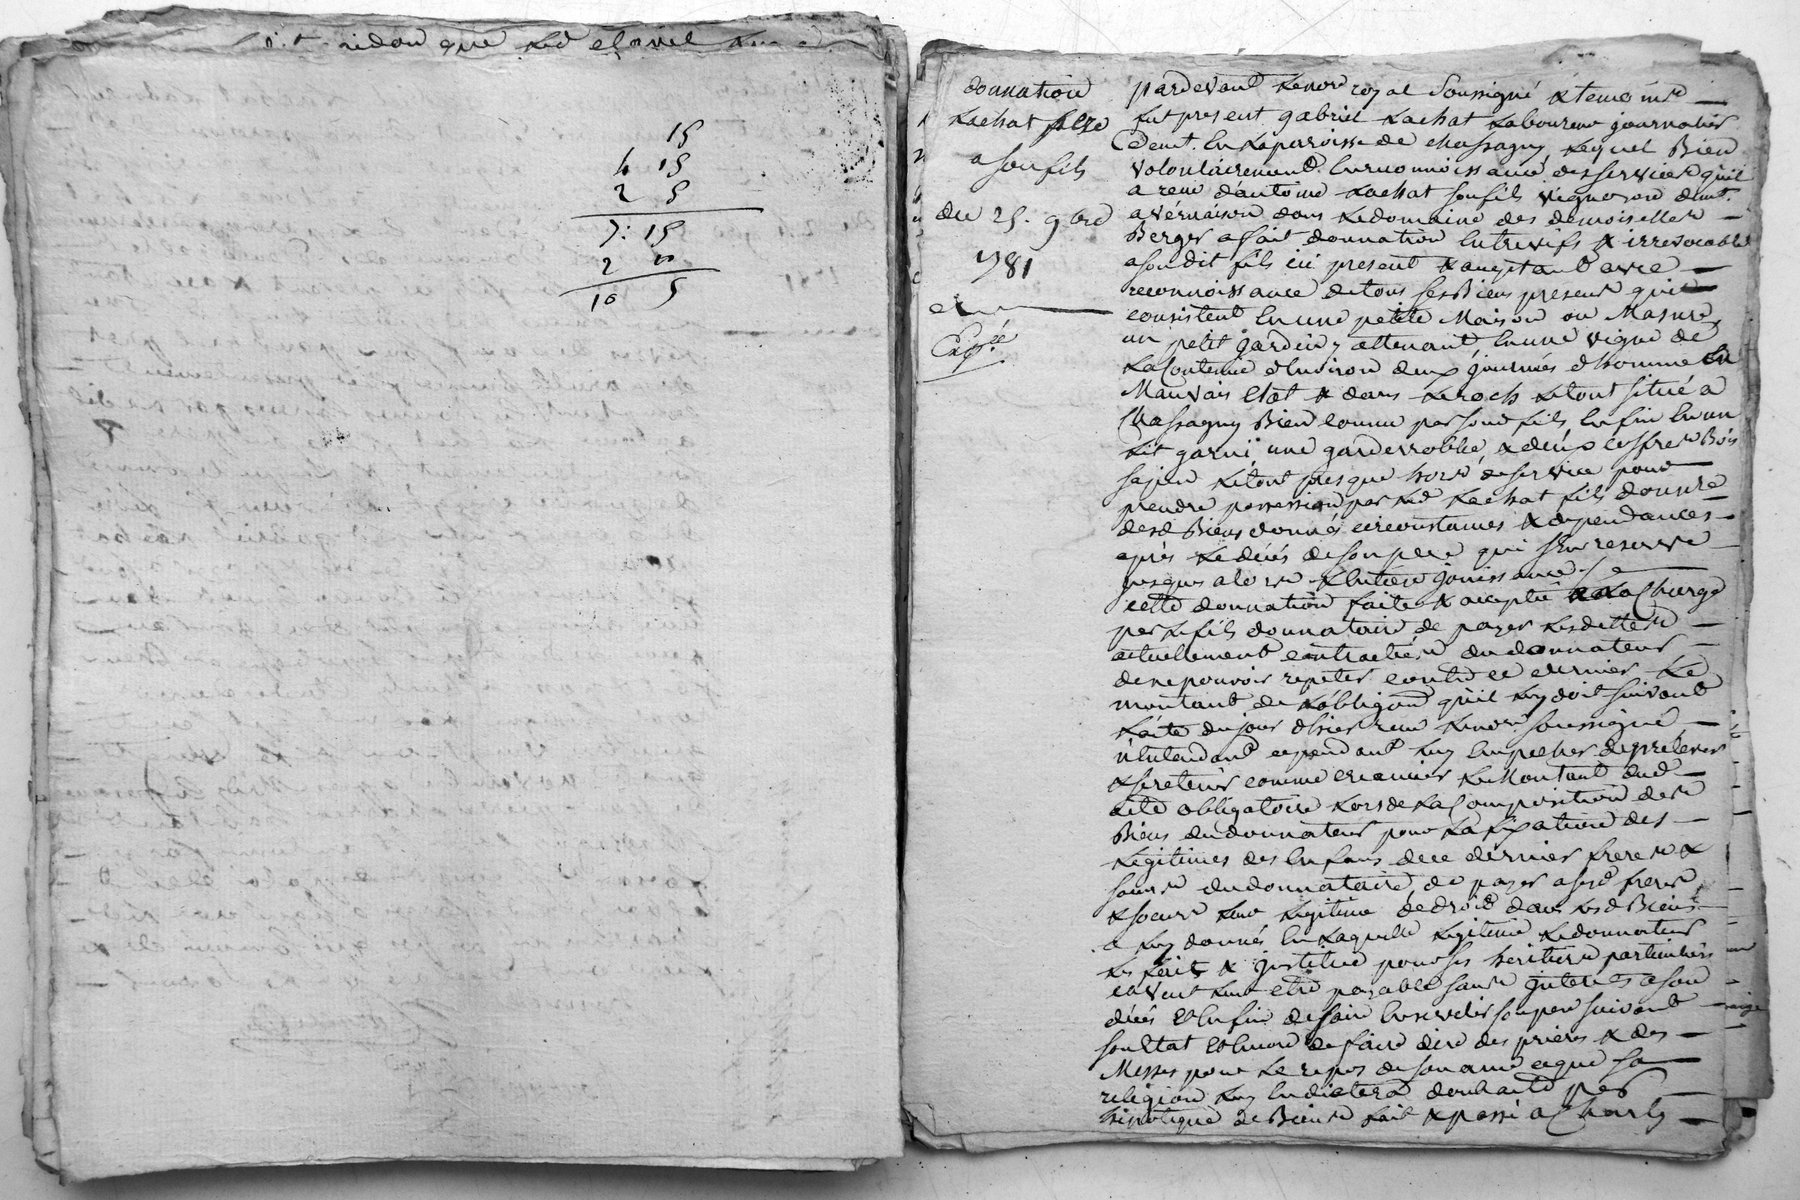 que led
15
6 15
2 5
7: 15
2 10
10 5
donnation
Lachat pere
a son fils
du 25. 9bre
1781
Expée
pardevant le nore royal soussigné & temoins
fut present gabriel Lachat Laboureur journalier
demt. en la paroisse de Chassagny Lequel Bien
volontairement En reconnoissance des services qu'il
a reçu d'antoine Lachat son fils vigneron demt.
a vernaison dans le domaine des demoiselles
Berger a fait donnation Entrevifs & irrevocable
a son dit fils ici present & acceptant avec
reconnoissance de tous ses Biens presents qui
consistent En une petite Maison ou Masure
un petit jardin y attenant, En une vigne de
La Contenue d'Environ deux journées d'homme En
Mauvais Etat & dans le roch le tout situé a
Chassagny Bien connu par son d fils, Enfin En un
Lit garni, une garderobbe, & deux coffres Bois
sapin le tout presque hors de service pour
prendre possession par led Lachat fils donnre
desd Biens donnés circonstances & dependances
après le décés de son pere qui s'En reserve
jusques alors l'Entiere jouissance
cette donnation faite & acceptée a la Charge
par le fils donnataire de payer les dettes
actuellement contractées du donnateur
de ne pouvoir repeter contre ce dernier Le
montant de L'obligaon qu'il luy doit suivant
L'acte du jour d'hier reçu le nore soussigné
n'Entendant cependant luy Empecher de prelever
& se retenir comme creancier Le Montant dud
acte obligatoire Lors de La Composition des
Biens du donnateur pour La fixation des
Legitimes des Enfans de ce dernier freres &
soeurs du donnataire, de payer a sesd freres
& soeurs Leur Legitime de droit dans lesd Biens
a luy donnés En Laquelle Legitime le donnateur
les fait & institue pour ses heritiers particuliers
devant leur etre payable sans interets a son
décés Et Enfin de faire Ensevelir son pere suivant
son Etat Et Encore de faire dire des prieres & des
Messes pour Le repos de son ame ce que sa
religion luy En dictera
de Biens fait & passé a Charly